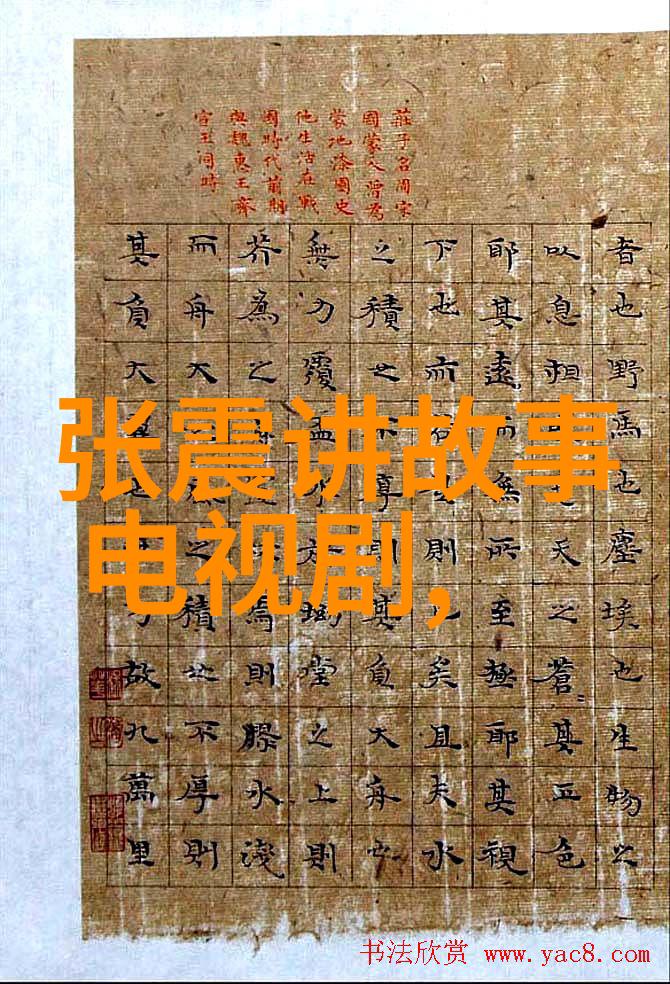 莊子名周宋
國蒙人曾為
蒙地漆園史
他生活在戰
國時代前期
與魏惠王齊
宣王同時
者也野馬也塵埃也生物之
以息相吹也天之蒼其正色
耶其遠而無所至極耶其視
下也而若是則已矣且夫水
之積也不厚則其負大舟也
無力覆盃水於坳堂之上則
芥為之舟置杯焉則膠水淺
而舟大也風之積也不厚則
其負大翼也無力故九萬里
张震讲故事
电视剧,
书法欣赏 www.yac8.com